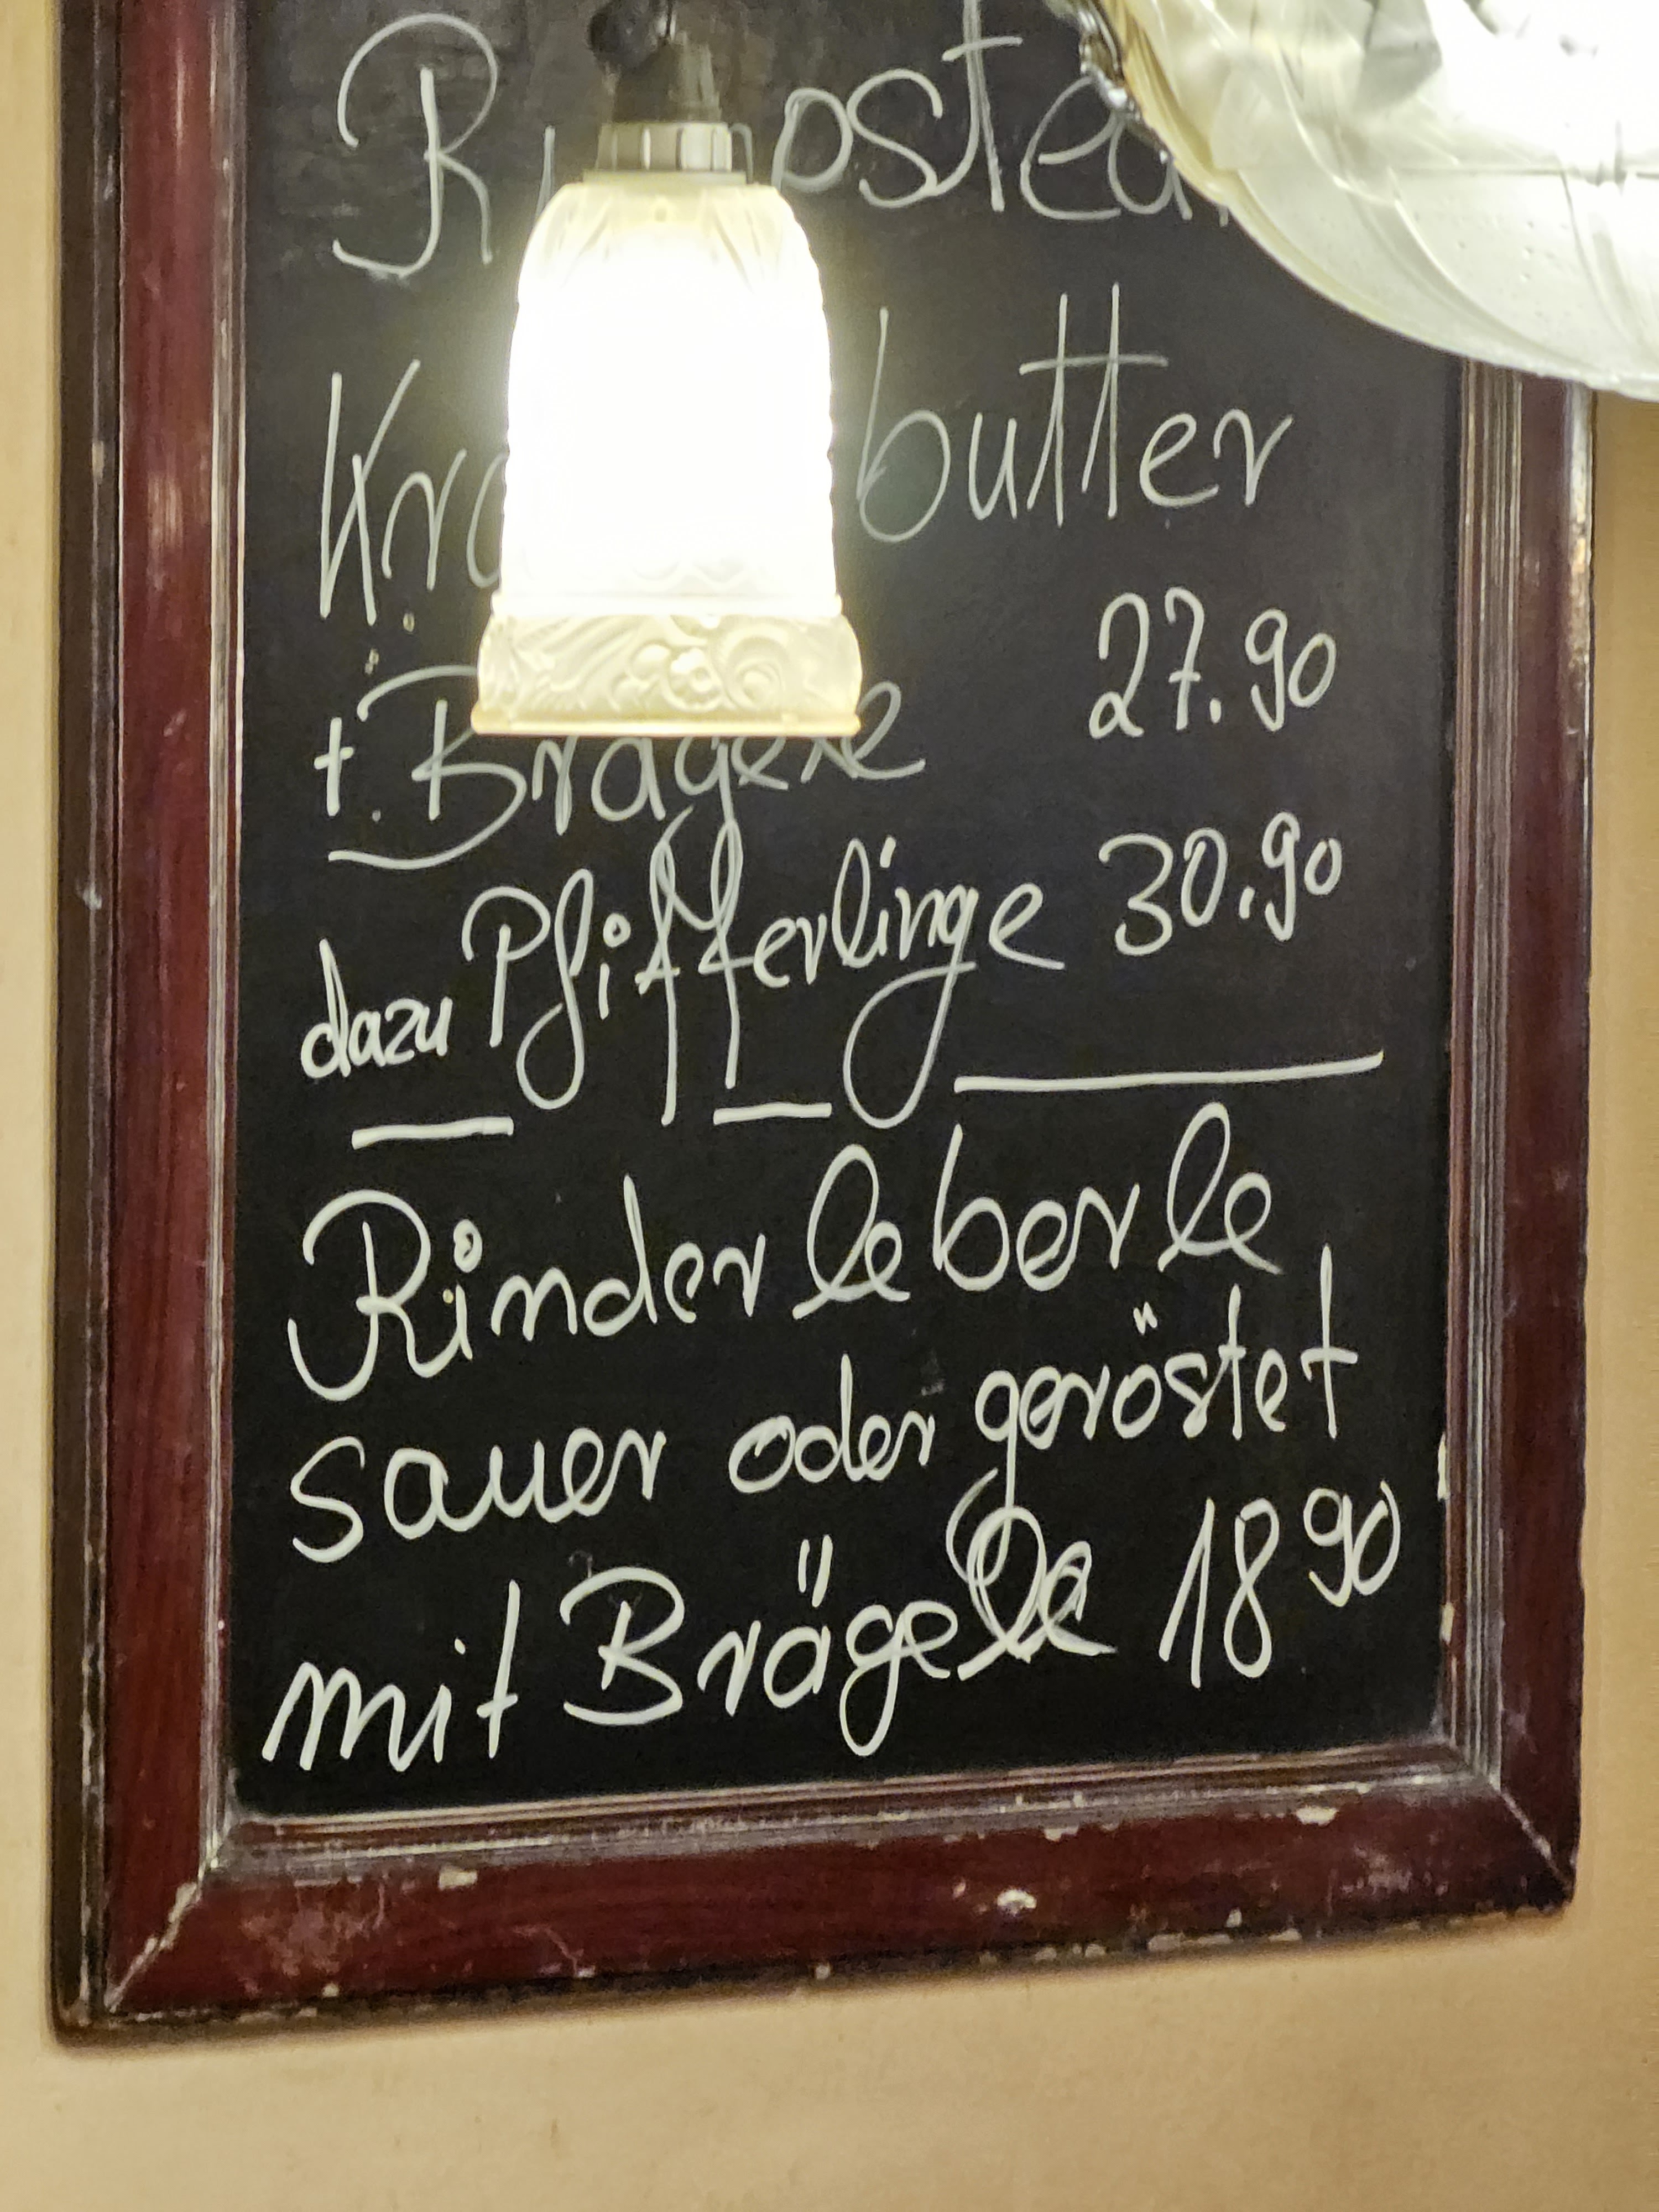 butter
+ Brägele 27.90
dazu Pfifferlinge 30.90
Rinderleberle
sauer oder geröstet
mit Brägele 18 90